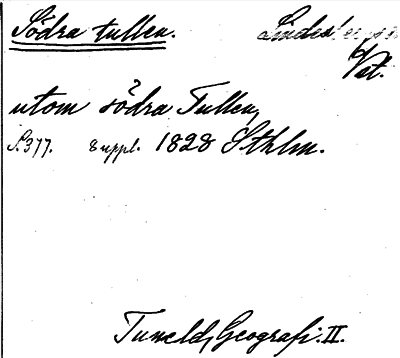 Södra tullen. Lindesberg
Vstl.
utom södra Tullen,
S. 377. 8 uppl. 1828 Sthlm.
Tuneld, Geografi. II.